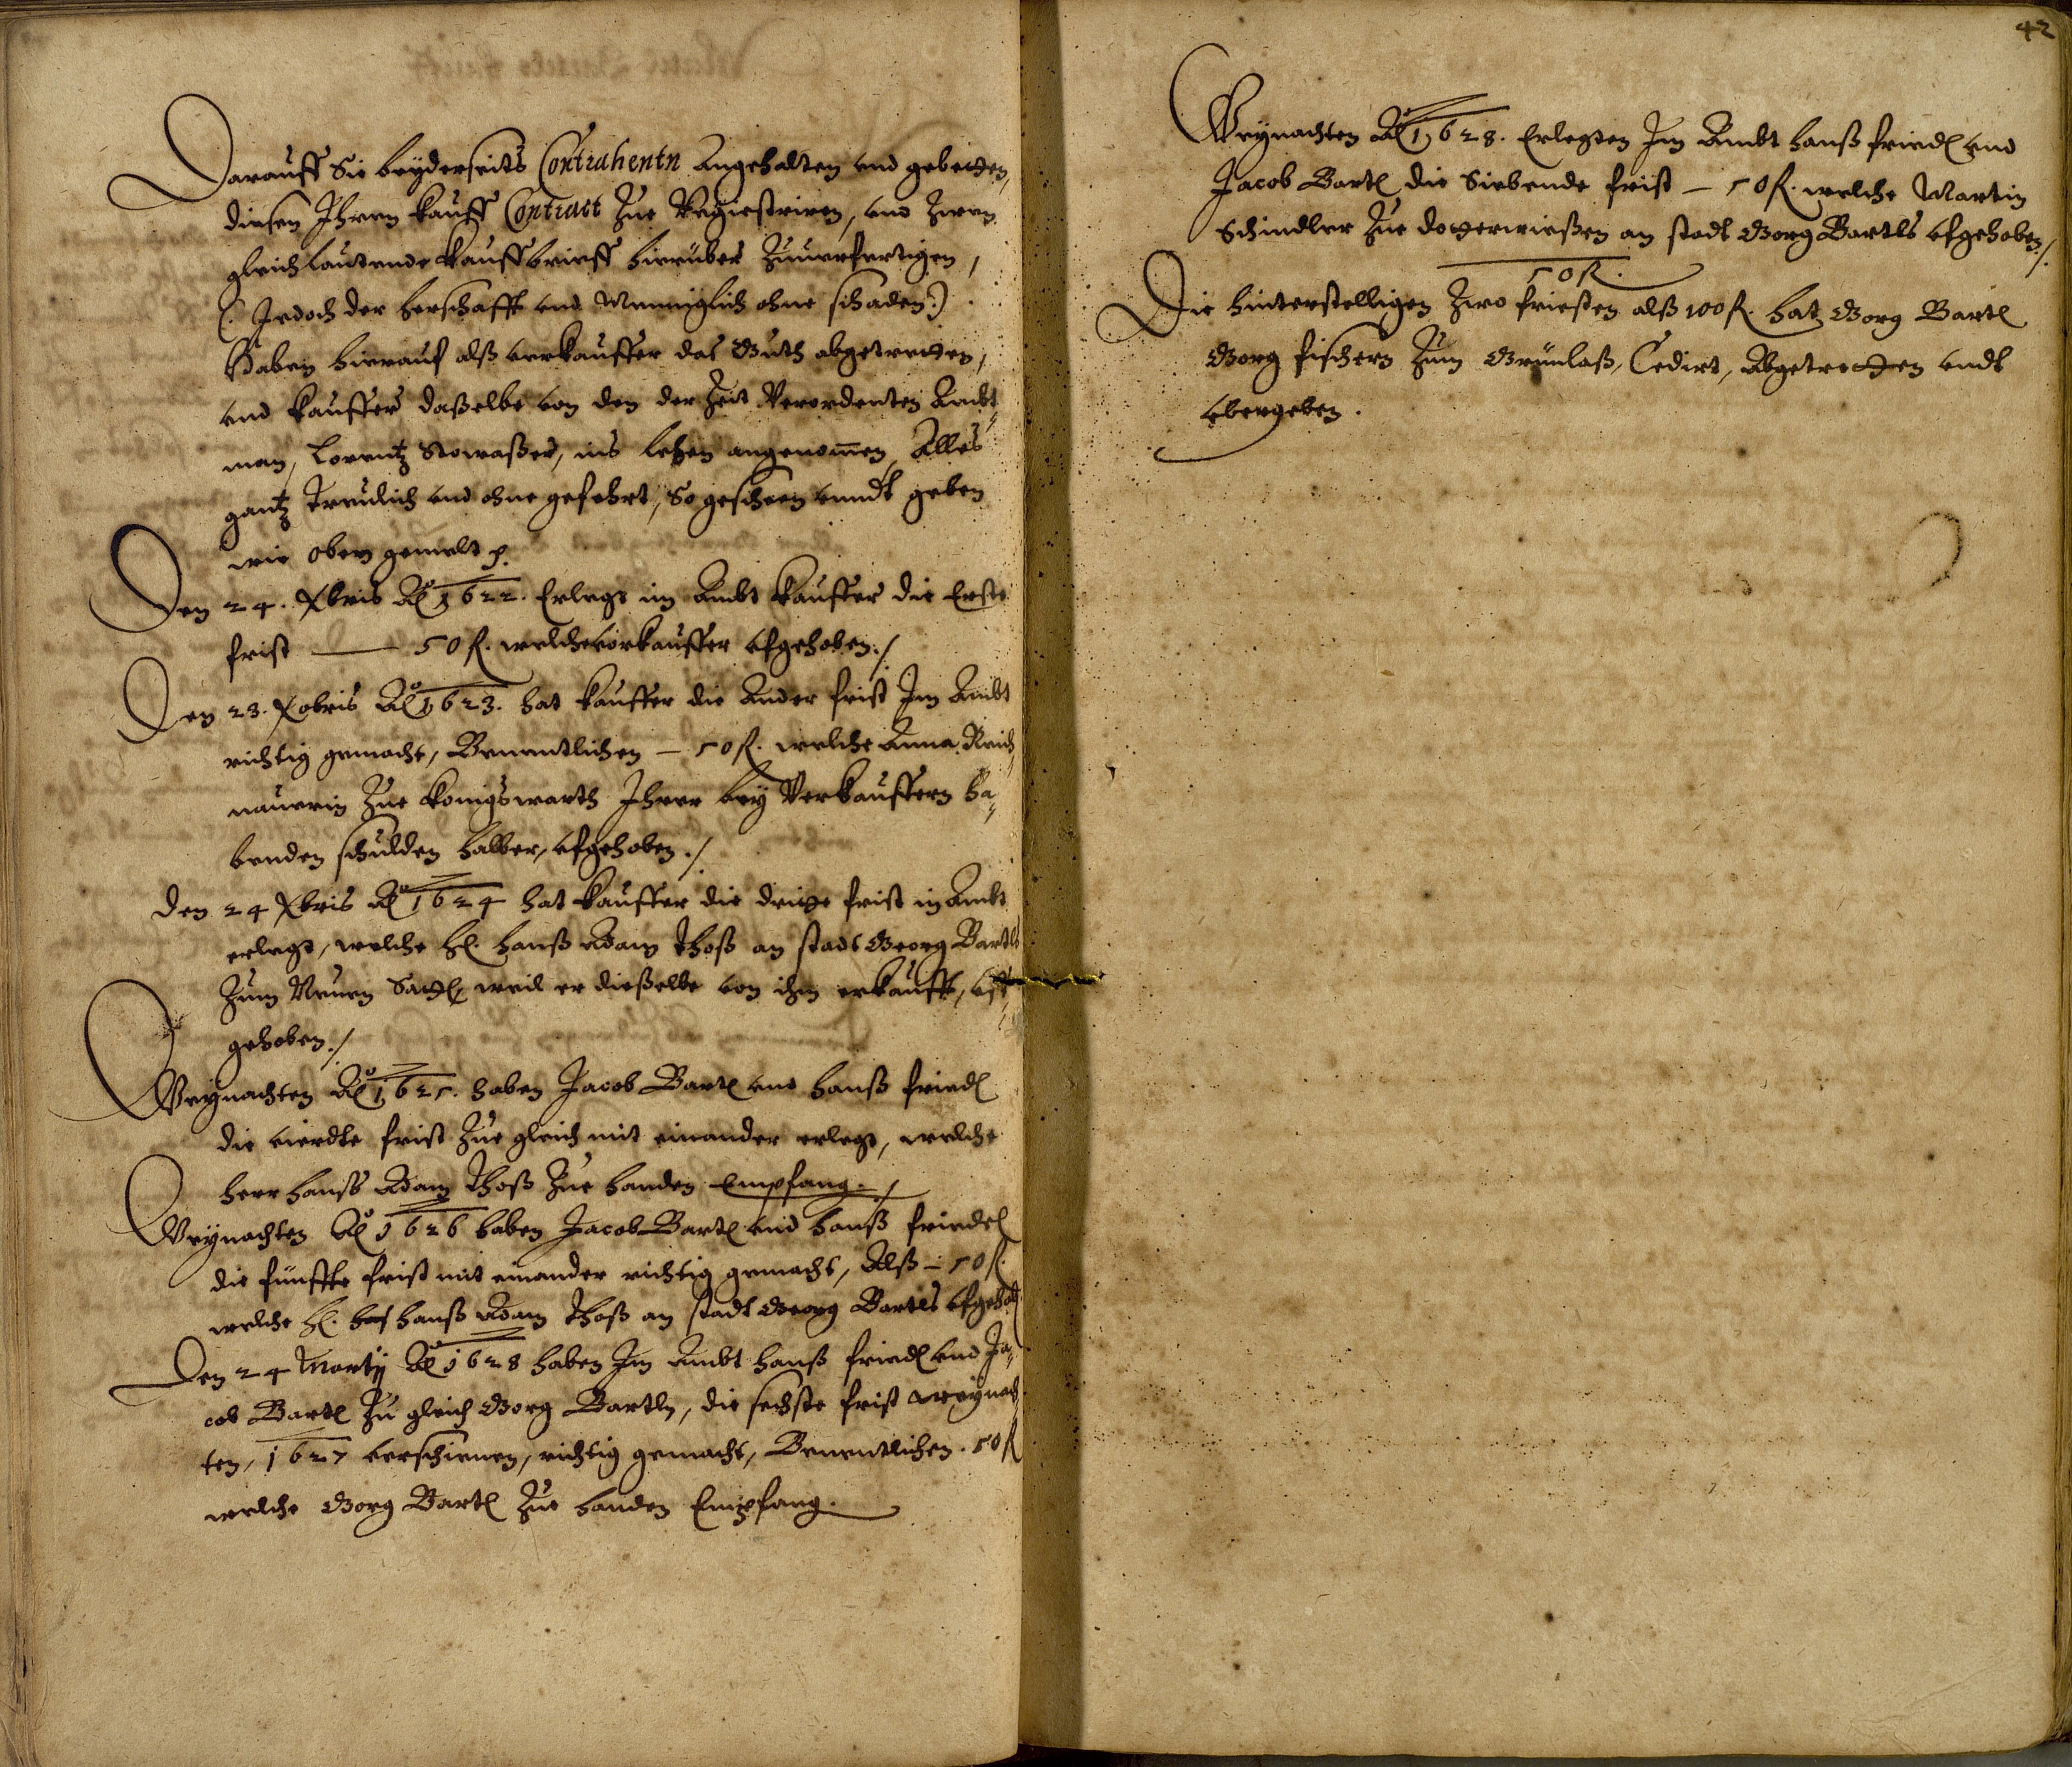 Darauff Sie beyderseits Contrahentn Angehalten und gebethen,
diesen Ihren Kauff Contract Zue Registriren, und Zwen
gleichlautende Kauffbrieff hierüber Zuuerfertigen,
(: Jedoch der herschafft und Menniglich ohne schaden :)
Haben hierauf alß verkauffer das Guth abgetretten,
und Kauffer daßelbe von den der Zeit Verordenten Ambt
man, Lorentz Nowaßer, ins lehen angenommen, Alles
gantz treulich und ohne gefehrt, So geschen unndt geben
wie oben gemelt
Den 24. Xbris Ao 1622. Erlegt im Ambt Kauffer die Erste
frist — 50 fl. welche vorkauffer ufgehoben./
Den 23. Xobris Ao 1623. hat Kauffer die Ander frist Im Ambt
richtig gemacht, Benentlichen — 50 fl. welche Anna Reich
nauerin Zue Konigswarth Ihrer bey Verkauffern ha
benden schulden halber, ufgehoben./
Den 24 Xbris Ao 1624 hat Kauffer die dritte frist in Ambt
erlegt, welche H. Hanß Adam Thoß an stadt Georg Bartls
Zum Neuen weil er dießelbe von ihm erkaufft, uff
gehoben./
Weynachten Ao 1625. haben Jacob Bartl und Hanß friedl
die vierdte frist Zue gleich mit einander erlegt, welche
Herr Hanß Adam Thoß Zue handen Empfang./
Weynachten Ao 1626 haben Jacob Bartl und Hanß friedel
die fünffte frist mit einander richtig gemacht, Alß — 50 fl.
welche H. Hanß Adam Thoß an stadt Georg Bartls ufgehob
Den 24 Marty Ao 1628 haben Im Ambt Hanß friedl und Ja
cob Bartl Zu gleich Georg Bartln, die sechste frist Weynach
ten, 1627 verschienen, richtig gemacht, Benentlichen. 50 fl
welche Georg Bartl Zue handen Empfang.
42
Weynachten Ao 1628. Erlegten Im Ambt Hanß friedl und
Jacob Bartl die Siebende frist — 50 fl. welche Martin
Schindler Zue an stadt Georg Bartls ufgehoben./
50 fl.
Die hinterstelligen Zwo friesten alß 100 fl. hat Georg Bartl
Georg fischern Zum Grünlaß, Cedirt, Abgetretten undt
ubergeben.